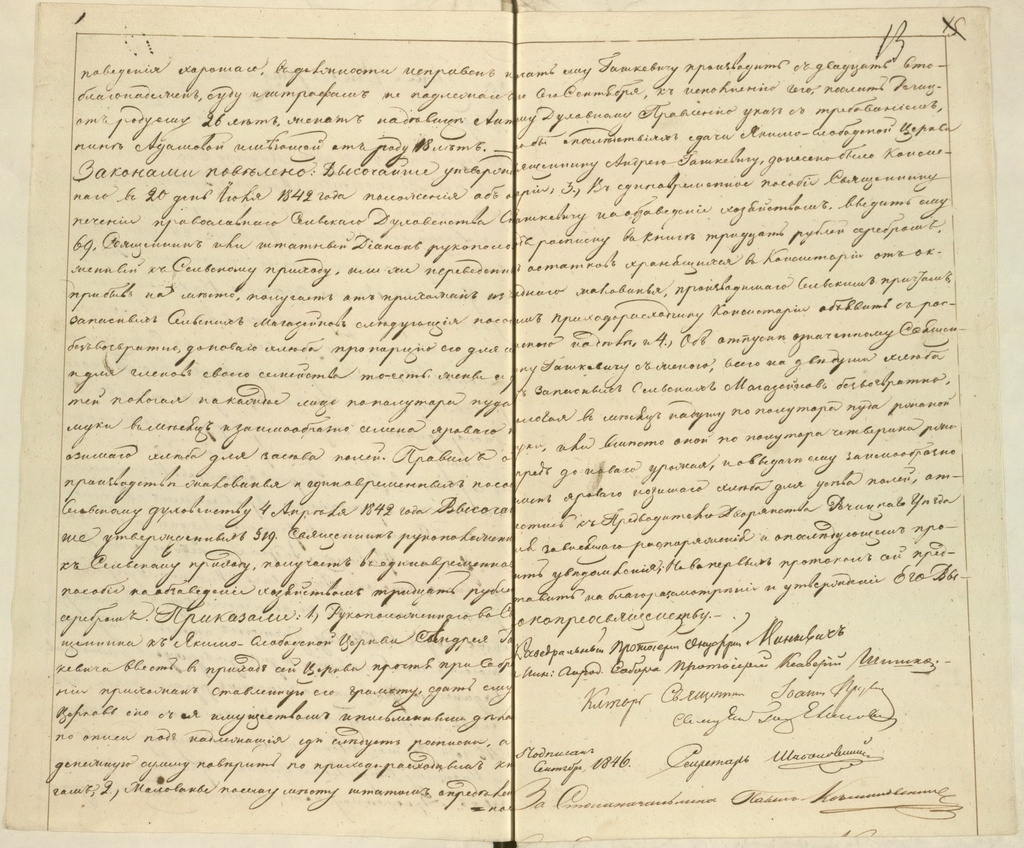 15
13
поведенія хорошаго, въ должности исправенъ и
благонадеженъ, суду и штрафамъ не подлежалъ
отъ роду ему 26 лѣтъ, женатъ на дѣвицѣ
Адамовой имѣющей отъ роду 18 лѣтъ. —
Законами повелѣно: Высочайше утвержд
наго въ 20 день Іюля 1842 года положенія объ о
печеніи православнаго Сельскаго Духовенства §
69, Священникъ или штатный Діаконъ рукополо
женный къ Сельскому приходу, или же переведенн
прибывъ на мѣсто, получаетъ отъ прихожанъ из
запасныхъ Сельскихъ Магазейновъ слѣдующія посо
безвозвратно, до новаго хлѣба пропорцію его для с
и для членовъ своего семейства то есть жены и
тей полагая на каждое лице по полутора пуда
муки въ мѣсяцъ и заимообразно сѣмена яроваго и
озимаго хлѣба для засѣва полей. Правилъ о
производствѣ жалованья и единовременныхъ посо
Сельскому духовенству 4 Апрѣля 1842 года Высоча
ше утвержденныхъ §19. Священникъ рукоположенн
къ Сельскому приходу, получаетъ въ единовременно
пособіе на обзаведеніе хозяйствомъ тридцать рубле
серебромъ. Приказали: 1, Рукоположеннаго во С
щенника къ Якимо-Слободской Церкви Андрея Га
кевича ввесть въ приходъ сей Церкви прочтя при собр
ніи прихожанъ ставленную его грамату, сдать ему
Церковь сію съ ея имуществомъ и письменными дѣла
по описи подъ надлежащія гдѣ слѣдуетъ росписки, а
денежную сумму повѣрить по приходорасходнымъ кн
гамъ; 2, Жалованье по сему мѣсту штатомъ опредѣлен
= ное
лать ему Гашкевичу производить съ двадцать вто-
го Сентября, къ исполненію чего, послать Речиц-
му Духовному Правленію указъ съ требованіемъ,
бы о послѣдствіяхъ сдачи Якимо-Слободской Церкви
щеннику Андрею Гашкевичу, донесено было Консис-
ріи; 3, Въ единовременное пособіе Священнику
шкевичу на обзаведеніе хозяйствомъ, выдать ему
ъ росписку въ книгѣ тридцать рублей серебромъ,
остатковъ хранящихся въ Консисторіи отъ ок-
днаго жалованья, производимаго Сельскимъ причтамъ,
имъ приходорасходчику Консисторіи объявить съ рос-
кою на дѣлѣ, и 4, Объ отпускѣ означенному Священ-
ку Гашкевичу съ женою, всего на двѣ души хлѣба
ъ запасныхъ Сельскихъ Магазейновъ безвозвратно,
лагая въ мѣсяцъ на душу по полутора пуда ржаной
уки, или вмѣсто оной по полутора четверика ржи
предь до новаго урожая, и о выдачѣ ему заимообразно
мянъ яроваго и озимаго хлѣба для посѣва полей, от-
естись къ Предводителю Дворянства Рѣчицкаго Уѣзда
ля зависящаго распоряженія и о послѣдующемъ про-
сить увѣдомленія; Но во первыхъ протоколъ сей пред-
ставить на благоразсмотрѣніе и утвержденіе Его Вы-
сокопреосвященству. —
Каѳедральный Протоіерей Миневичъ
Мин: Город. Собора Протоіерей Ксаверій
Ключарь Священникъ Іоаннъ
Подписанъ
Сентября 1846.
Секретарь
За Столоначальника Павелъ